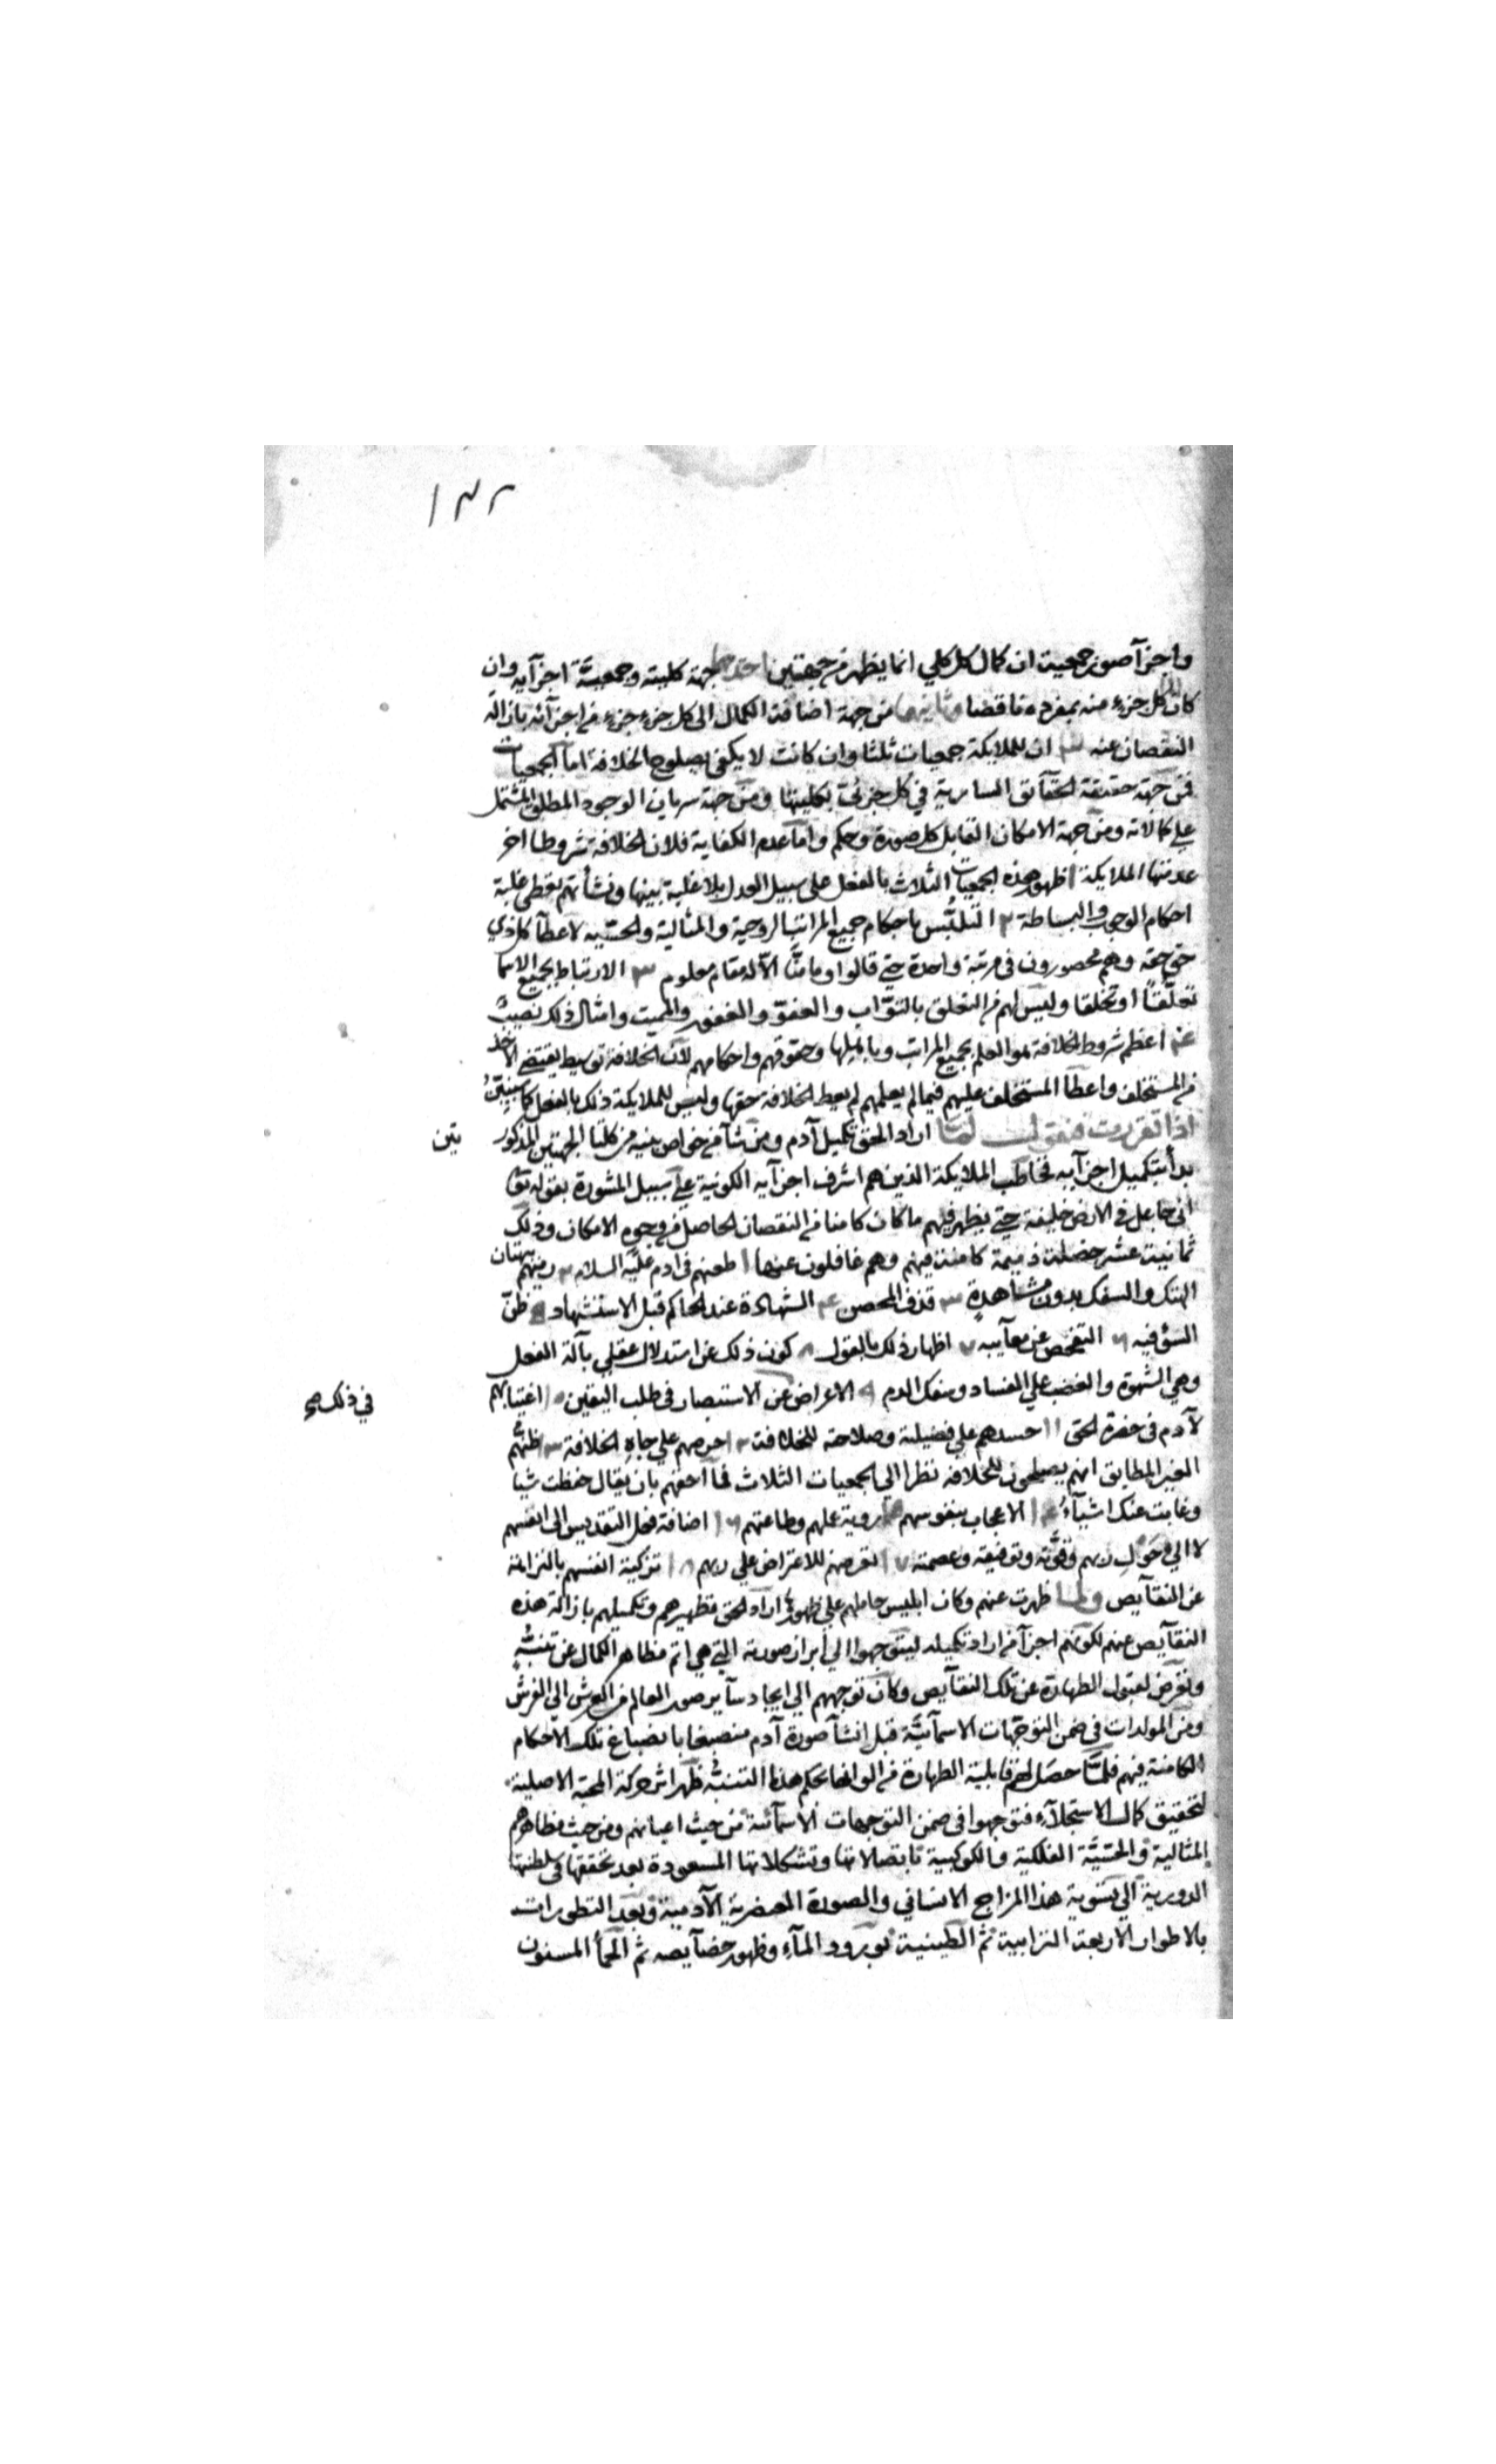 ١٣٢
واجزآ صور جمعيته ان كمال كل كلي انما يظهر من جهتين احدهما جهة كليته وجمعيّة اجزآيه وان
كان كل جزء منه بمفرده ناقصا وثانيهما من جهة اضافة الكمال الى كل جزء جزء من اجزآئه بازالة
النقصان عنه ٣ ان للملايكة جمعيات ثلثا وان كانت لا يكفى بصلوح الخلافة اما الجمعيات
فمن جهة حقيقة الحقآئق السارية في كل جزئى بكليتها ومن جهة سريان الوجود المطلق المشتمل
علي كمالاته ومن جهة الامكان القابل كل صورة وحكم واما عدم الكفاية فلان للخلافة شروطا اخر
عدمتها الملايكة ا ظهور هذه الجمعيات الثلاث بالفعل على سبيل العدل بلا غلبة بينها ونشأتهم يعطى غلبة
احكام الوجوب والبساطة ٢ التلبّس باحكام جميع المراتب الروحية والمثالية والحسّيه لاعطآء كل ذي
حق حقه وهم محصورون فى مرتبة واحدة حتى قالوا وما منّا الّا له مقام معلوم ٣ الارتباط بجميع الاسما
تعلّقا او تخلقا وليس لهم من التعلق بالتوّاب والعفوّ والغفور والمميت وامثال ذلك نصيب
٤ اعظم شروط الخلافة هو العلم بجميع المراتب وباهلها وحقوقهم واحكامهم لانّ الخلافة توسيط يقتضى الاخذ
من المستخلف واعطآ المستخلف عليهم فيما لم يعلمهم لم يعط الخلافة حقها وليس للملايكة ذلك بالفعل كما سيبيّن
اذا تقررت فنقول لمّا اراد الحق تكميل آدم ومن شآء من خواص بنيه من كلتا الجهتين المذكور
تين
بدأ بتكميل اجزآيه فخاطب الملايكة الذين هم اشرف اجزآيه الكونية على سبيل المشورة بقوله تع
انى جاعل فى الارض خليفة حتى يظهر فيهم ما كان كامنا من النقصان الحاصل من وجوه الامكان وذلك
ثمانية عشر خصلة ذميمة كامنة فيهم وهم غافلون عنها ا طعنهم فى ادم عليه السلام ٢ رميهم بهتان
الهتك والسفك بدون مشاهدة ٣ قذف المحصن ٤ الشهادة عند الحاكم قبل الاستشهاد ٥ ظنّ
السؤ فيه ٦ التفحص عن معآيبه ٧ اظهار ذلك بالقول ٨ كون ذلك عن استدلال عقلي بآلة الفعل
وهي الشهوة والغضب علي الفساد وسفك الدم ٩ الاعراض عن الاستبصار فى طلب اليقين ١٠ اغتيابهم
في ذلك صح
لآدم فى حضرة الحق ١١ حسدهم علي فضيلته وصلاحته للخلافة ١٢ حرصهم علي جاه الخلافة ١٣ ظنّهم
الغير المطابق انهم يصلحون للخلافة نظرا الي الجمعيات الثلاث فما احقهم بان يقال حفظت شيا
وغابت عنك اشيآء ١٤ الاعجاب بنفوسهم ١٥ روية علمهم وطاعتهم ١٦ اضافة فعل التقديس الى انفسهم
لا الي حَوْل ربهم وقوّته وتوفيقه وعصمته ١٧ تعرضهم للاعتراض علي ربهم ١٨ تزكية انفسهم بالنزاهة
عن النقآيص ولما ظهرت عنهم وكان ابليس حاملهم علي ظهورها اراد الحق تطهيرهم وتكميلهم بازالة هذه
النقآيص عنهم لكونهم اجزآء من اراد تكميله ليتوجهوا الي ابراز صورته التي هي اتم مظاهر الكمال عن تنبّه
وتعرّض لقبول الطهارة عن تلك النقآيص وكان توجههم الي ايجاد سآير صور العالم من العرش الى الفرش
ومن المولدات في ضمن التوجّهات الاسمآئيّة قبل انشآء صورة آدم منصبغا بانصباغ تلك الاحكام
الكامنة فيهم فلمّا حصل لهم قابلية الطهارة من الواثها بحكم هذا التنبّه ظهر اثر حركة المحبة الاصلية
لتحقيق كمال الاستجلآء فتوجهوا في ضمن التوجهات الاسمآئية من حيث اعيانهم ومن حيث مظاهرهم
المثالية والحسّيّة الفلكية والكوكبية باتصلاتها وتشكلاتها المسعودة بعد تحققها فى سلطنتها
الدورية الى تسوية هذا المزاج الانسانى والصورة العنصرية الآدمية وبعد التطورات
بالاطوار الاربعة الترابية ثم الطينية بورود المآء وظهور خصآيصه ثم الحمأ المسنون